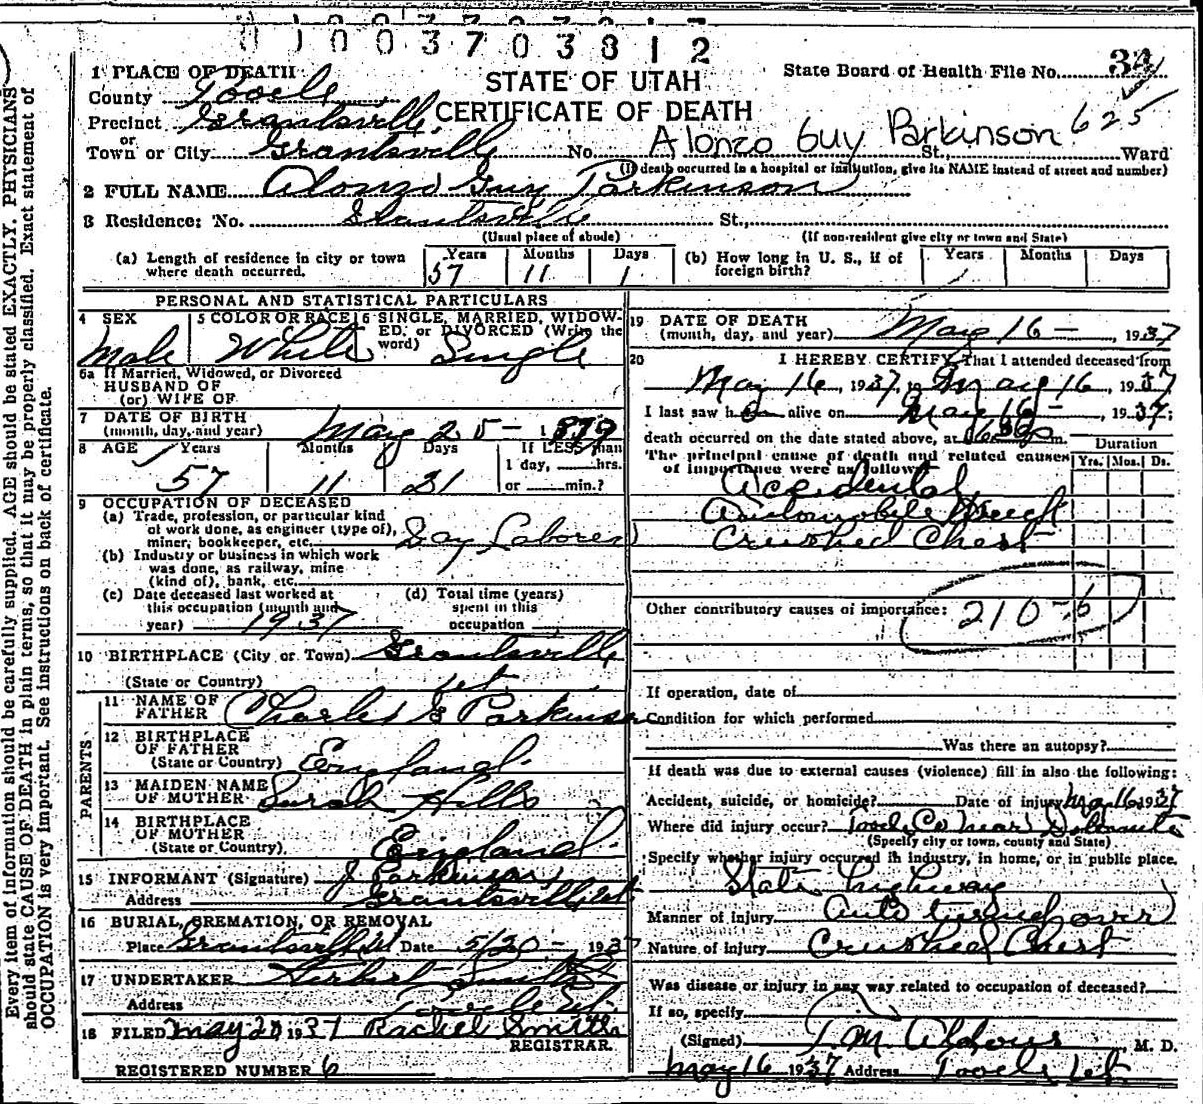 1 0 0 3 7 0 3 8 1 2
STATE OF UTAH
CERTIFICATE OF DEATH
State Board of Health File No. 34
625
Alonzo Guy Parkinson
1 PLACE OF DEATH
County Tooele
Precinct Grantsville
or
Town or City Grantsville No. St., Ward
(If death occurred in a hospital or institution, give its NAME instead of street and number)
2 FULL NAME Alonzo Guy Parkinson
3 Residence: No. Grantsville St.,
(Usual place of abode) (If non-resident give city or town and State)
(a) Length of residence in city or town where death occurred. Years 57 Months 11 Days 1
(b) How long in U. S., if of foreign birth? Years Months Days
PERSONAL AND STATISTICAL PARTICULARS
4 SEX Male
5 COLOR OR RACE White
6 SINGLE, MARRIED, WIDOWED, or DIVORCED (Write the word) Single
6a If Married, Widowed, or Divorced
HUSBAND OF
(or) WIFE OF
7 DATE OF BIRTH
(month, day, and year) May 25 - 1879
8 AGE Years 57 Months 11 Days 21
If LESS than
1 day, hrs.
or min.?
9 OCCUPATION OF DECEASED
(a) Trade, profession, or particular kind
of work done, as engineer (type of),
miner, bookkeeper, etc. Day Laborer
(b) Industry or business in which work
was done, as railway, mine
(kind of), bank, etc.
(c) Date deceased last worked at
this occupation (month and
year) 1937
(d) Total time (years)
spent in this
occupation
10 BIRTHPLACE (City or Town) Grantsville
(State or Country) Ut.
PARENTS
11 NAME OF FATHER Charles G Parkinson
12 BIRTHPLACE OF FATHER
(State or Country) England
13 MAIDEN NAME OF MOTHER Sarah Hills
14 BIRTHPLACE OF MOTHER
(State or Country) England
15 INFORMANT (Signature) J Parkinson
Address Grantsville Ut
16 BURIAL, CREMATION, OR REMOVAL
Place Grantsville Ut Date 5/20 - 1937
17 UNDERTAKER Herbert
Address Tooele Ut.
18 FILED May 20 1937 Rachel Smith
REGISTRAR.
REGISTERED NUMBER 6
19 DATE OF DEATH
(month, day, and year) May 16 - 1937
20 I HEREBY CERTIFY, That I attended deceased from
May 16, 1937, to May 16, 1937
I last saw h alive on May 16 -, 1937;
death occurred on the date stated above, at m.
The principal cause of death and related causes
of importance were as follows:
Duration
Yrs. Mos. Ds.
Accidental
Automobile Wreck
Crushed Chest
Other contributory causes of importance:
210-6
If operation, date of
Condition for which performed
Was there an autopsy?
If death was due to external causes (violence) fill in also the following:
Accident, suicide, or homicide? Date of injury May 16 1937
Where did injury occur? Tooele Co near Dolomite
(Specify city or town, county and State)
Specify whether injury occurred in industry, in home, or in public place.
State highway
Manner of injury Auto turned over
Nature of injury Crushed Chest
Was disease or injury in any way related to occupation of deceased?
If so, specify
(Signed) T. M. Aldous M. D.
May 16 1937 Address Tooele Ut.
Every item of information should be carefully supplied. AGE should be stated EXACTLY. PHYSICIANS
should state CAUSE OF DEATH in plain terms, so that it may be properly classified. Exact statement of
OCCUPATION is very important. See instructions on back of certificate.